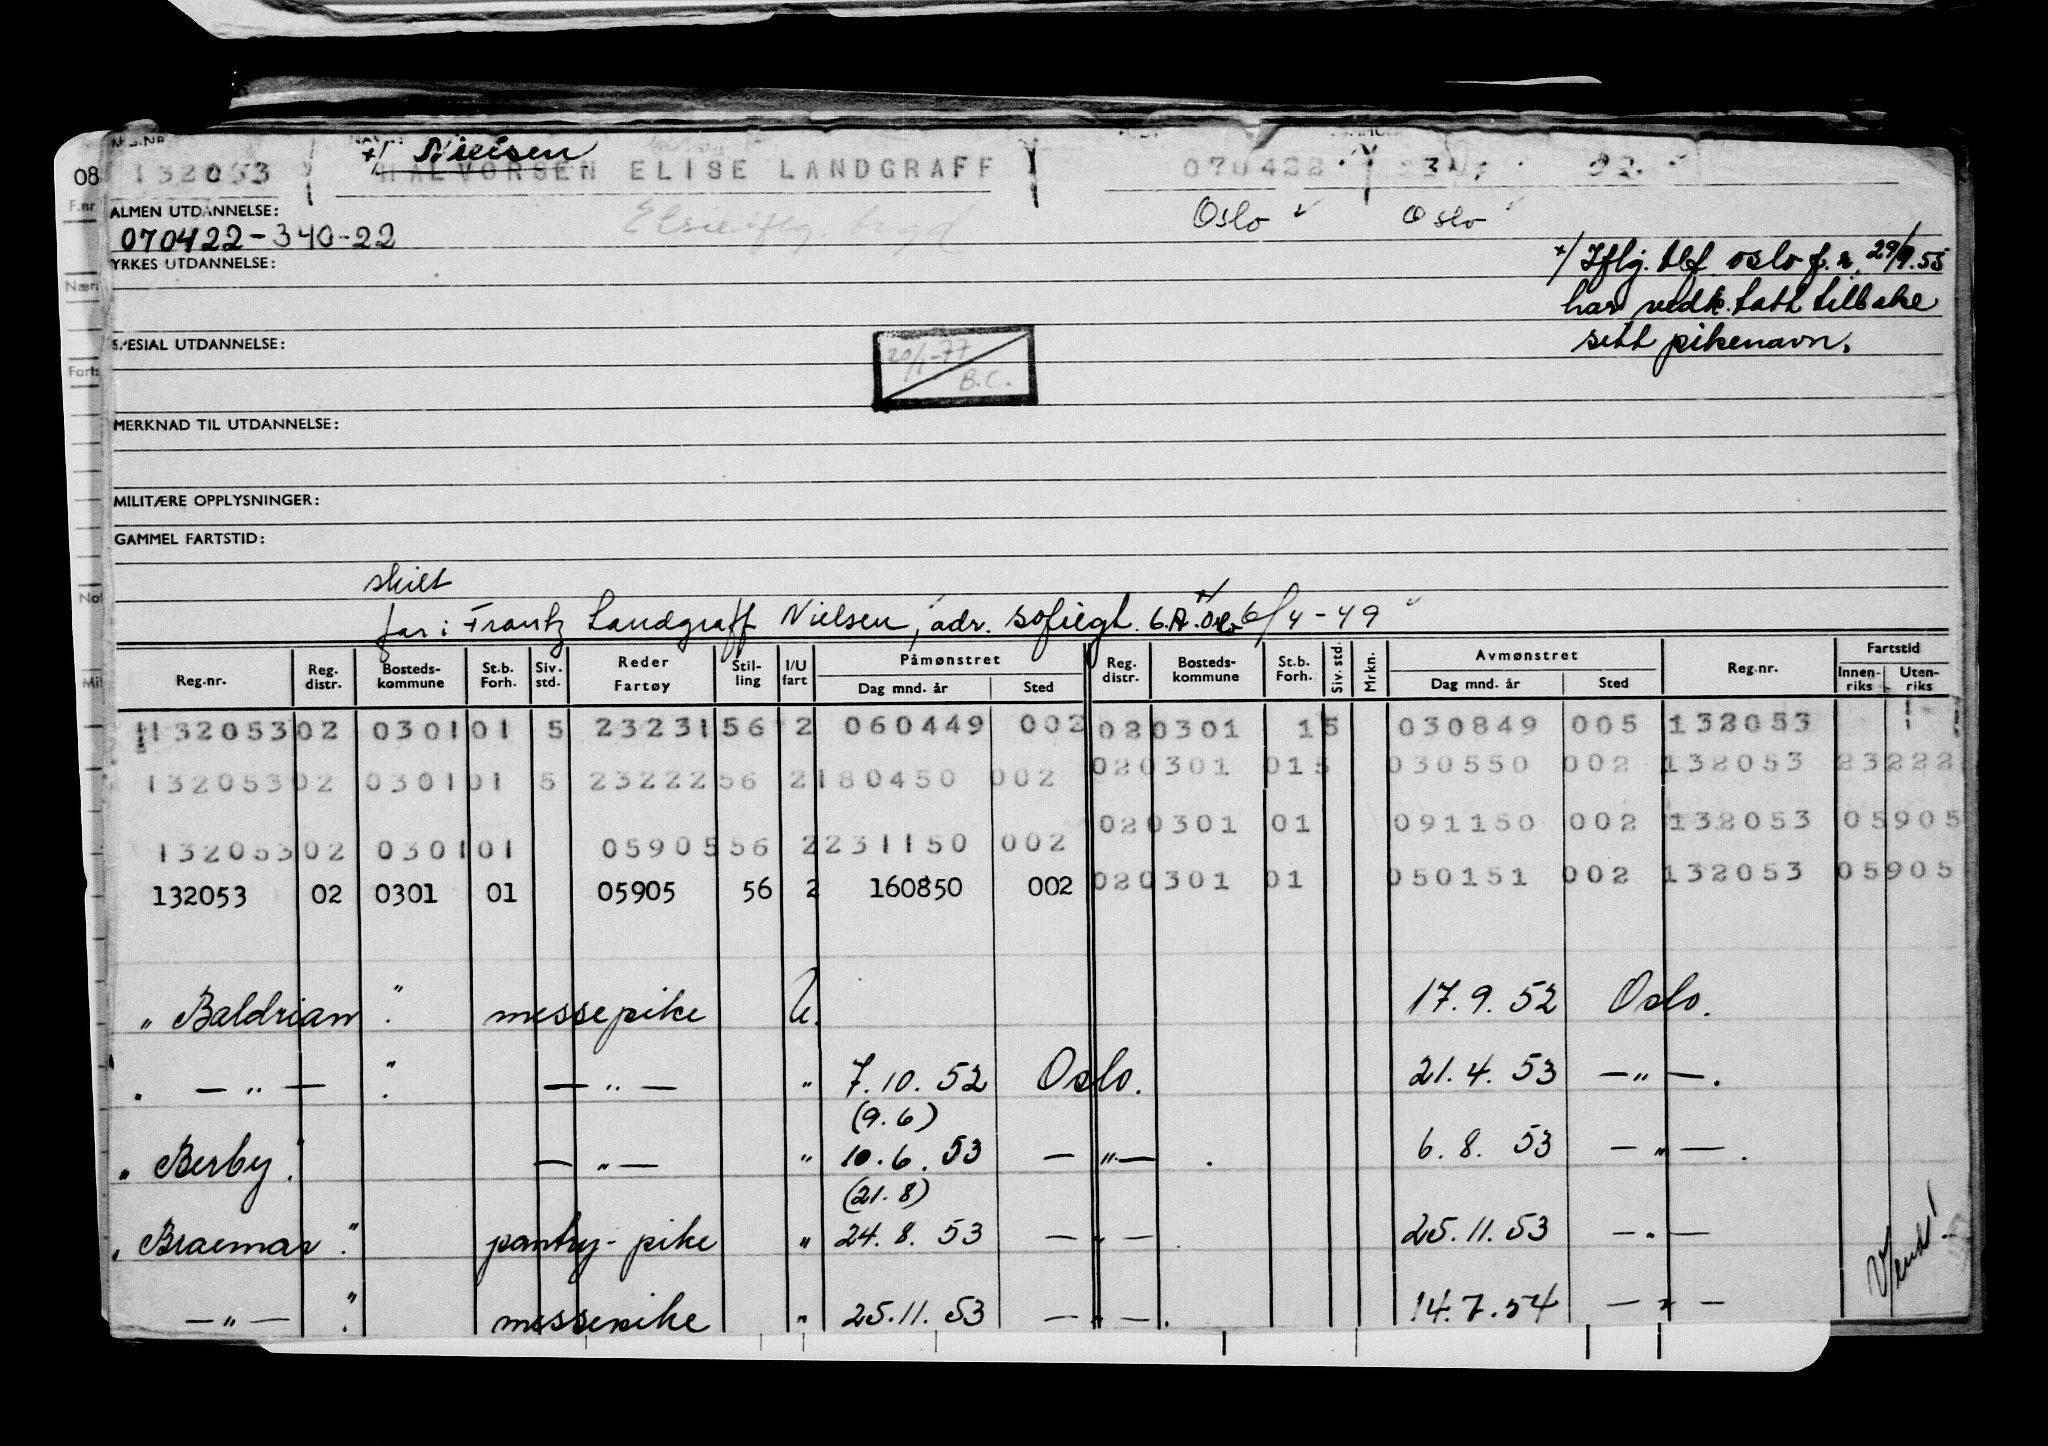 +/ Nielsen
08 132053 HALVORSEN ELISE LANDGRAFF 070422
F.nr ALMEN UTDANNELSE: Oslo Oslo
070422-340-22
YRKES UTDANNELSE:
+/ Iflg. tlf. Oslo f.r. 29/9.55
har vedk. tatt tilbake
sitt pikenavn.
SPESIAL UTDANNELSE:
20/1-77
B.C.
MERKNAD TIL UTDANNELSE:
MILITÆRE OPPLYSNINGER:
GAMMEL FARTSTID:
skilt
far: Frantz Landgraff Nielsen, adr. Sofiegt. 6.A. Oslo 6/4-49
Reg.nr. Reg. distr. Bosteds-kommune St.b. Forh. Siv. std. Reder Fartøy Stil-ling I/U fart Påmønstret Dag mnd. år Sted Reg. distr. Bosteds-kommune St.b. Forh. Siv. std. Mrkn. Avmønstret Dag mnd. år Sted Reg.nr. Fartstid Innen-riks Uten-riks
132053 02 0301 01 5 23231 56 2 060449 002 02 0301 1 5 030849 005 132053
132053 02 0301 01 5 23222 56 2 180450 002 02 0301 01 5 030550 002 132053 23222
132053 02 0301 01 05905 56 2 231150 002 02 0301 01 091150 002 132053 05905
132053 02 0301 01 05905 56 2 160850 002 02 0301 01 050151 002 132053 05905
" Baldrian " messepike U. 17.9.52 Oslo.
— " — " — " — " 7.10.52 Oslo. 21.4.53 — " —.
(9.6)
" Berby " — " — " 10.6.53 — " — . 6.8.53 — " — .
(21.8)
" Braemar " pantry-pike " 24.8.53 — " — . 25.11.53 — " —
Vend!
— " — " messepike " 25.11.53 — " — . 14.7.54 — " —